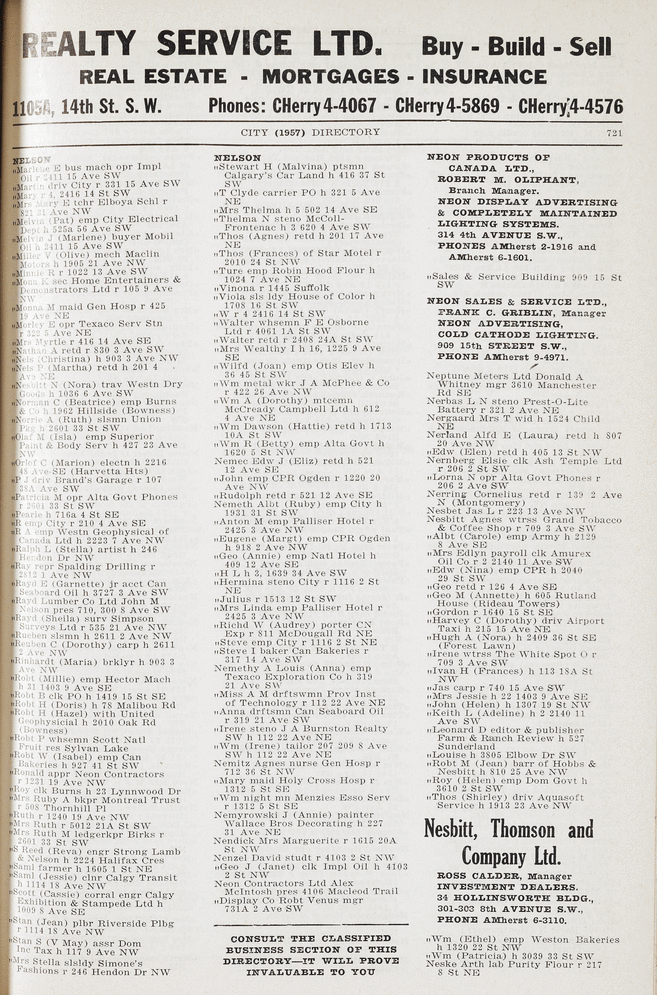 REALTY SERVICE LTD. Buy - Build - Sell
REAL ESTATE - MORTGAGES - INSURANCE
1105A, 14th St. S. W. Phones: CHerry 4-4067 - CHerry 4-5869 - CHerry 4-4576
CITY (1957) DIRECTORY 721
NELSON
„Marlene E bus mach opr Impl
Oil r 2411 15 Ave SW
„Martin driv City r 331 15 Ave SW
„Mary r 4, 2416 14 St SW
„Mrs Mary E tchr Elboya Schl r
821 31 Ave NW
„Melvin (Pat) emp City Electrical
Dept h 525a 56 Ave SW
„Melvin J (Marlene) buyer Mobil
Oil h 2411 15 Ave SW
„Miller V (Olive) mech Maclin
Motors h 1905 21 Ave NW
„Minnie R r 1022 13 Ave SW
„Mona K sec Home Entertainers &
Demonstrators Ltd r 105 9 Ave
NW
„Monna M maid Gen Hosp r 425
19 Ave NE
„Morley E opr Texaco Serv Stn
r 322 5 Ave NE
„Mrs Myrtle r 416 14 Ave SE
„Nathan A retd r 830 3 Ave SW
„Nels (Christina) h 903 3 Ave NW
„Nels P (Martha) retd h 201 4
Ave NE
„Nesbitt N (Nora) trav Westn Dry
Goods h 1036 6 Ave SW
„Norman C (Beatrice) emp Burns
& Co h 1962 Hillside (Bowness)
„Norrie A (Ruth) slsmn Union
Pkg h 2601 33 St SW
„Olaf M (Isla) emp Superior
Paint & Body Serv h 427 23 Ave
NW
„Orlof C (Marion) electn h 2216
48 Ave SE (Harvetta Hts)
„P J driv Brand's Garage r 107
38A Ave SW
„Patricia M opr Alta Govt Phones
r 2601 33 St SW
„Pearle h 716a 4 St SE
„R emp City r 210 4 Ave SE
„R A emp Westn Geophysical of
Canada Ltd h 2223 7 Ave NW
„Ralph L (Stella) artist h 246
Hendon Dr NW
„Ray repr Spalding Drilling r
2812 1 Ave NW
„Rayd E (Garnette) jr acct Can
Seaboard Oil h 3727 3 Ave SW
„Rayd Lumber Co Ltd John M
Nelson pres 710, 300 8 Ave SW
„Rayd (Sheila) surv Simpson
Surveys Ltd r 535 21 Ave NW
„Rueben slsmn h 2611 2 Ave NW
„Reuben C (Dorothy) carp h 2611
2 Ave NW
„Rinhardt (Maria) brklyr h 903 3
Ave NW
„Robt (Millie) emp Hector Mach
h 31 1403 9 Ave SE
„Robt B clk PO h 1419 15 St SE
„Robt H (Doris) h 78 Malibou Rd
„Robt H (Hazel) with United
Geophysicial h 2010 Oak Rd
(Bowness)
„Robt P whsemn Scott Natl
Fruit res Sylvan Lake
„Robt W (Isabel) emp Can
Bakeries h 927 41 St SW
„Ronald appr Neon Contractors
r 1231 19 Ave NW
„Roy clk Burns h 23 Lynnwood Dr
„Mrs Ruby A bkpr Montreal Trust
r 508 Thornhill Pl
„Ruth r 1240 19 Ave NW
„Mrs Ruth r 5012 21A St SW
„Mrs Ruth M ledgerkpr Birks r
2601 33 St SW
„S Reed (Reva) engr Strong Lamb
& Nelson h 2224 Halifax Cres
„Saml farmer h 1605 1 St NE
„Saml (Jessie) clnr Calgy Transit
h 1114 18 Ave NW
„Scott (Cassie) corral engr Calgy
Exhibition & Stampede Ltd h
1009 8 Ave SE
„Stan (Jean) plbr Riverside Plbg
r 1114 18 Ave NW
„Stan S (V May) assr Dom
Inc Tax h 117 9 Ave NW
„Mrs Stella slsldy Simone's
Fashions r 246 Hendon Dr NW
NELSON
„Stewart H (Malvina) ptsmn
Calgary's Car Land h 416 37 St
SW
„T Clyde carrier PO h 321 5 Ave
NE
„Mrs Thelma h 5 502 14 Ave SE
„Thelma N steno McColl-
Frontenac h 3 620 4 Ave SW
„Thos (Agnes) retd h 201 17 Ave
NE
„Thos (Frances) of Star Motel r
2010 24 St NW
„Ture emp Robin Hood Flour h
1024 7 Ave NE
„Vinona r 1445 Suffolk
„Viola sls ldy House of Color h
1708 16 St SW
„W r 4 2416 14 St SW
„Walter whsemn F E Osborne
Ltd r 4061 1A St SW
„Walter retd r 2408 24A St SW
„Mrs Wealthy I h 16, 1225 9 Ave
SE
„Wilfd (Joan) emp Otis Elev h
36 45 St SW
„Wm metal wkr J A McPhee & Co
r 422 26 Ave NW
„Wm A (Dorothy) mtcemn
McCready Campbell Ltd h 612
4 Ave NE
„Wm Dawson (Hattie) retd h 1713
10A St SW
„Wm R (Betty) emp Alta Govt h
1620 5 St NW
Nemec Edw J (Eliz) retd h 521
12 Ave SE
„John emp CPR Ogden r 1220 20
Ave NW
„Rudolph retd r 521 12 Ave SE
Nemeth Albt (Ruby) emp City h
1931 31 St SW
„Anton M emp Palliser Hotel r
2425 3 Ave NW
„Eugene (Margt) emp CPR Ogden
h 918 2 Ave NW
„Geo (Annie) emp Natl Hotel h
409 12 Ave SE
„H L h 3, 1639 34 Ave SW
„Hermina steno City r 1116 2 St
NE
„Julius r 1513 12 St SW
„Mrs Linda emp Palliser Hotel r
2425 3 Ave NW
„Richd W (Audrey) porter CN
Exp r 811 McDougall Rd NE
„Steve emp City r 1116 2 St NE
„Steve I baker Can Bakeries r
317 14 Ave SW
Nemethy A Louis (Anna) emp
Texaco Exploration Co h 319
21 Ave SW
„Miss A M drftswmn Prov Inst
of Technology r 112 22 Ave NE
„Anna drftsmn Can Seaboard Oil
r 319 21 Ave SW
„Irene steno J A Burnston Realty
SW h 112 22 Ave NE
„Wm (Irene) tailor 207 209 8 Ave
SW h 112 22 Ave NE
Nemitz Agnes nurse Gen Hosp r
712 36 St NW
„Mary maid Holy Cross Hosp r
1312 5 St SE
„Wm night mn Menzies Esso Serv
r 1312 5 St SE
Nemyrowski J (Annie) painter
Wallace Bros Decorating h 227
31 Ave NW
Nendick Mrs Marguerite r 1615 20A
St NW
Nenzel David studt r 4103 2 St NW
„Geo J (Janet) clk Impl Oil h 4103
2 St NW
Neon Contractors Ltd Alex
McIntosh pres 4106 Macleod Trail
„Display Co Robt Venus mgr
731A 2 Ave SW
CONSULT THE CLASSIFIED
BUSINESS SECTION OF THIS
DIRECTORY—IT WILL PROVE
INVALUABLE TO YOU
NEON PRODUCTS OF
CANADA LTD.,
ROBERT M. OLIPHANT,
Branch Manager.
NEON DISPLAY ADVERTISING
& COMPLETELY MAINTAINED
LIGHTING SYSTEMS.
314 4th AVENUE S.W.,
PHONES AMherst 2-1916 and
AMherst 6-1601.
„Sales & Service Building 909 15 St
SW
NEON SALES & SERVICE LTD.,
FRANK C. GRIBLIN, Manager
NEON ADVERTISING,
COLD CATHODE LIGHTING.
909 15th STREET S.W.,
PHONE AMherst 9-4971.
Neptune Meters Ltd Donald A
Whitney mgr 3610 Manchester
Rd SE
Nerbas L N steno Prest-O-Lite
Battery r 321 2 Ave NE
Nergaard Mrs T wid h 1524 Child
NE
Nerland Alfd E (Laura) retd h 807
20 Ave NW
„Edw (Elen) retd h 405 13 St NW
Nernberg Elsie clk Ash Temple Ltd
r 206 2 St SW
„Lorna N opr Alta Govt Phones r
206 2 St SW
Nerring Cornelius retd r 139 2 Ave
N (Montgomery)
Nesbet Jas L r 223 13 Ave NW
Nesbitt Agnes wtrss Grand Tobacco
& Coffee Shop r 709 3 Ave SW
„Albt (Carole) emp Army h 2129
8 Ave SE
„Mrs Edlyn payroll clk Amurex
Oil Co r 2 2140 11 Ave SW
„Edw (Nina) emp CPR h 2040
29 St SW
„Geo retd r 126 4 Ave SE
„Geo M (Annette) h 605 Rutland
House (Rideau Towers)
„Gordon r 1640 15 St SE
„Harvey C (Dorothy) driv Airport
Taxi h 215 15 Ave NE
„Hugh A (Nora) h 2409 36 St SE
(Forest Lawn)
„Irene wtrss The White Spot O r
709 3 Ave SW
„Ivan H (Frances) h 113 18A St
NW
„Jas carp r 740 15 Ave SW
„Mrs Jessie h 22 1403 9 Ave SE
„John (Helen) h 1307 19 St NW
„Keith L (Adeline) h 2 2140 11
Ave SW
„Leonard D editor & publisher
Farm & Ranch Review h 527
Sunderland
„Louise h 3805 Elbow Dr SW
„Robt M (Jean) barr of Hobbs &
Nesbitt h 810 25 Ave NW
„Roy (Helen) emp Dom Govt h
3610 2 St SW
„Thos (Shirley) driv Aquasoft
Service h 1913 23 Ave NW
Nesbitt, Thomson and
Company Ltd.
ROSS CALDER, Manager
INVESTMENT DEALERS.
34 HOLLINSWORTH BLDG.,
301-303 8th AVENUE S.W.,
PHONE AMherst 6-3110.
„Wm (Ethel) emp Weston Bakeries
h 1320 22 St NW
„Wm (Patricia) h 3039 33 St SW
Neske Arth lab Purity Flour r 217
8 St NE